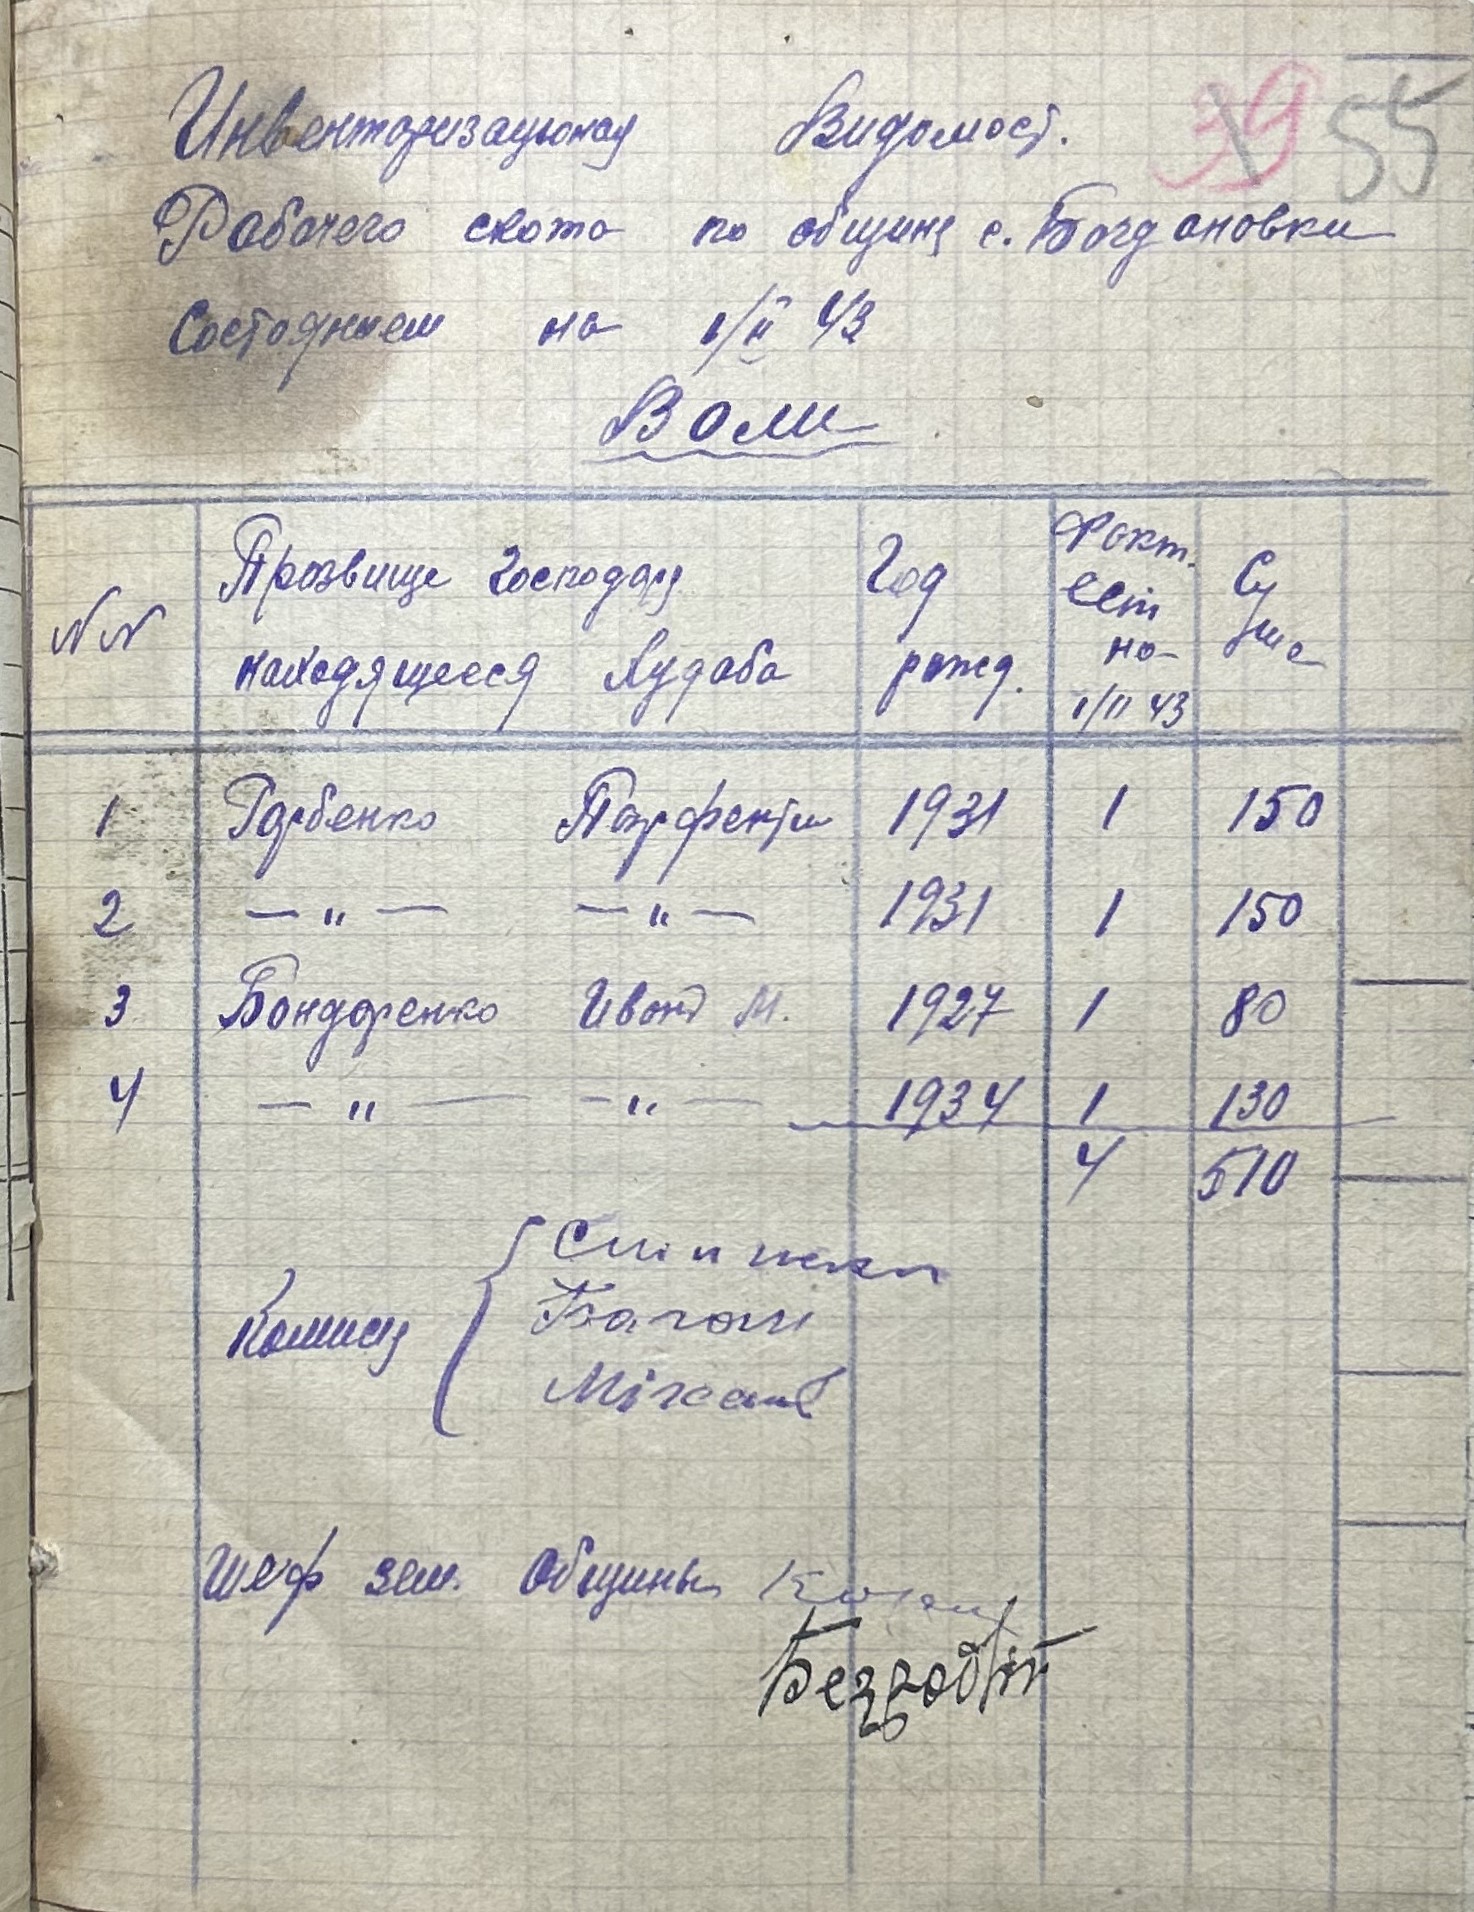 39 55
Инвенторизацыоная Видомост.
Рабочего скота по общине с. Богдановки
Состоянием на 1/II 43
Воли
NN
Прозвище господаря
находящееся худоба
Год
рожд.
Факт.
есть
на
1/II 43
Су
ма
1 Горбенко Парфентий 1931 1 150
2 — " — — " — 1931 1 150
3 Бондаренко Иван М. 1927 1 80
4 — " — — " — 1934 1 130
4 510
Комисия
Шеф зем. Общины